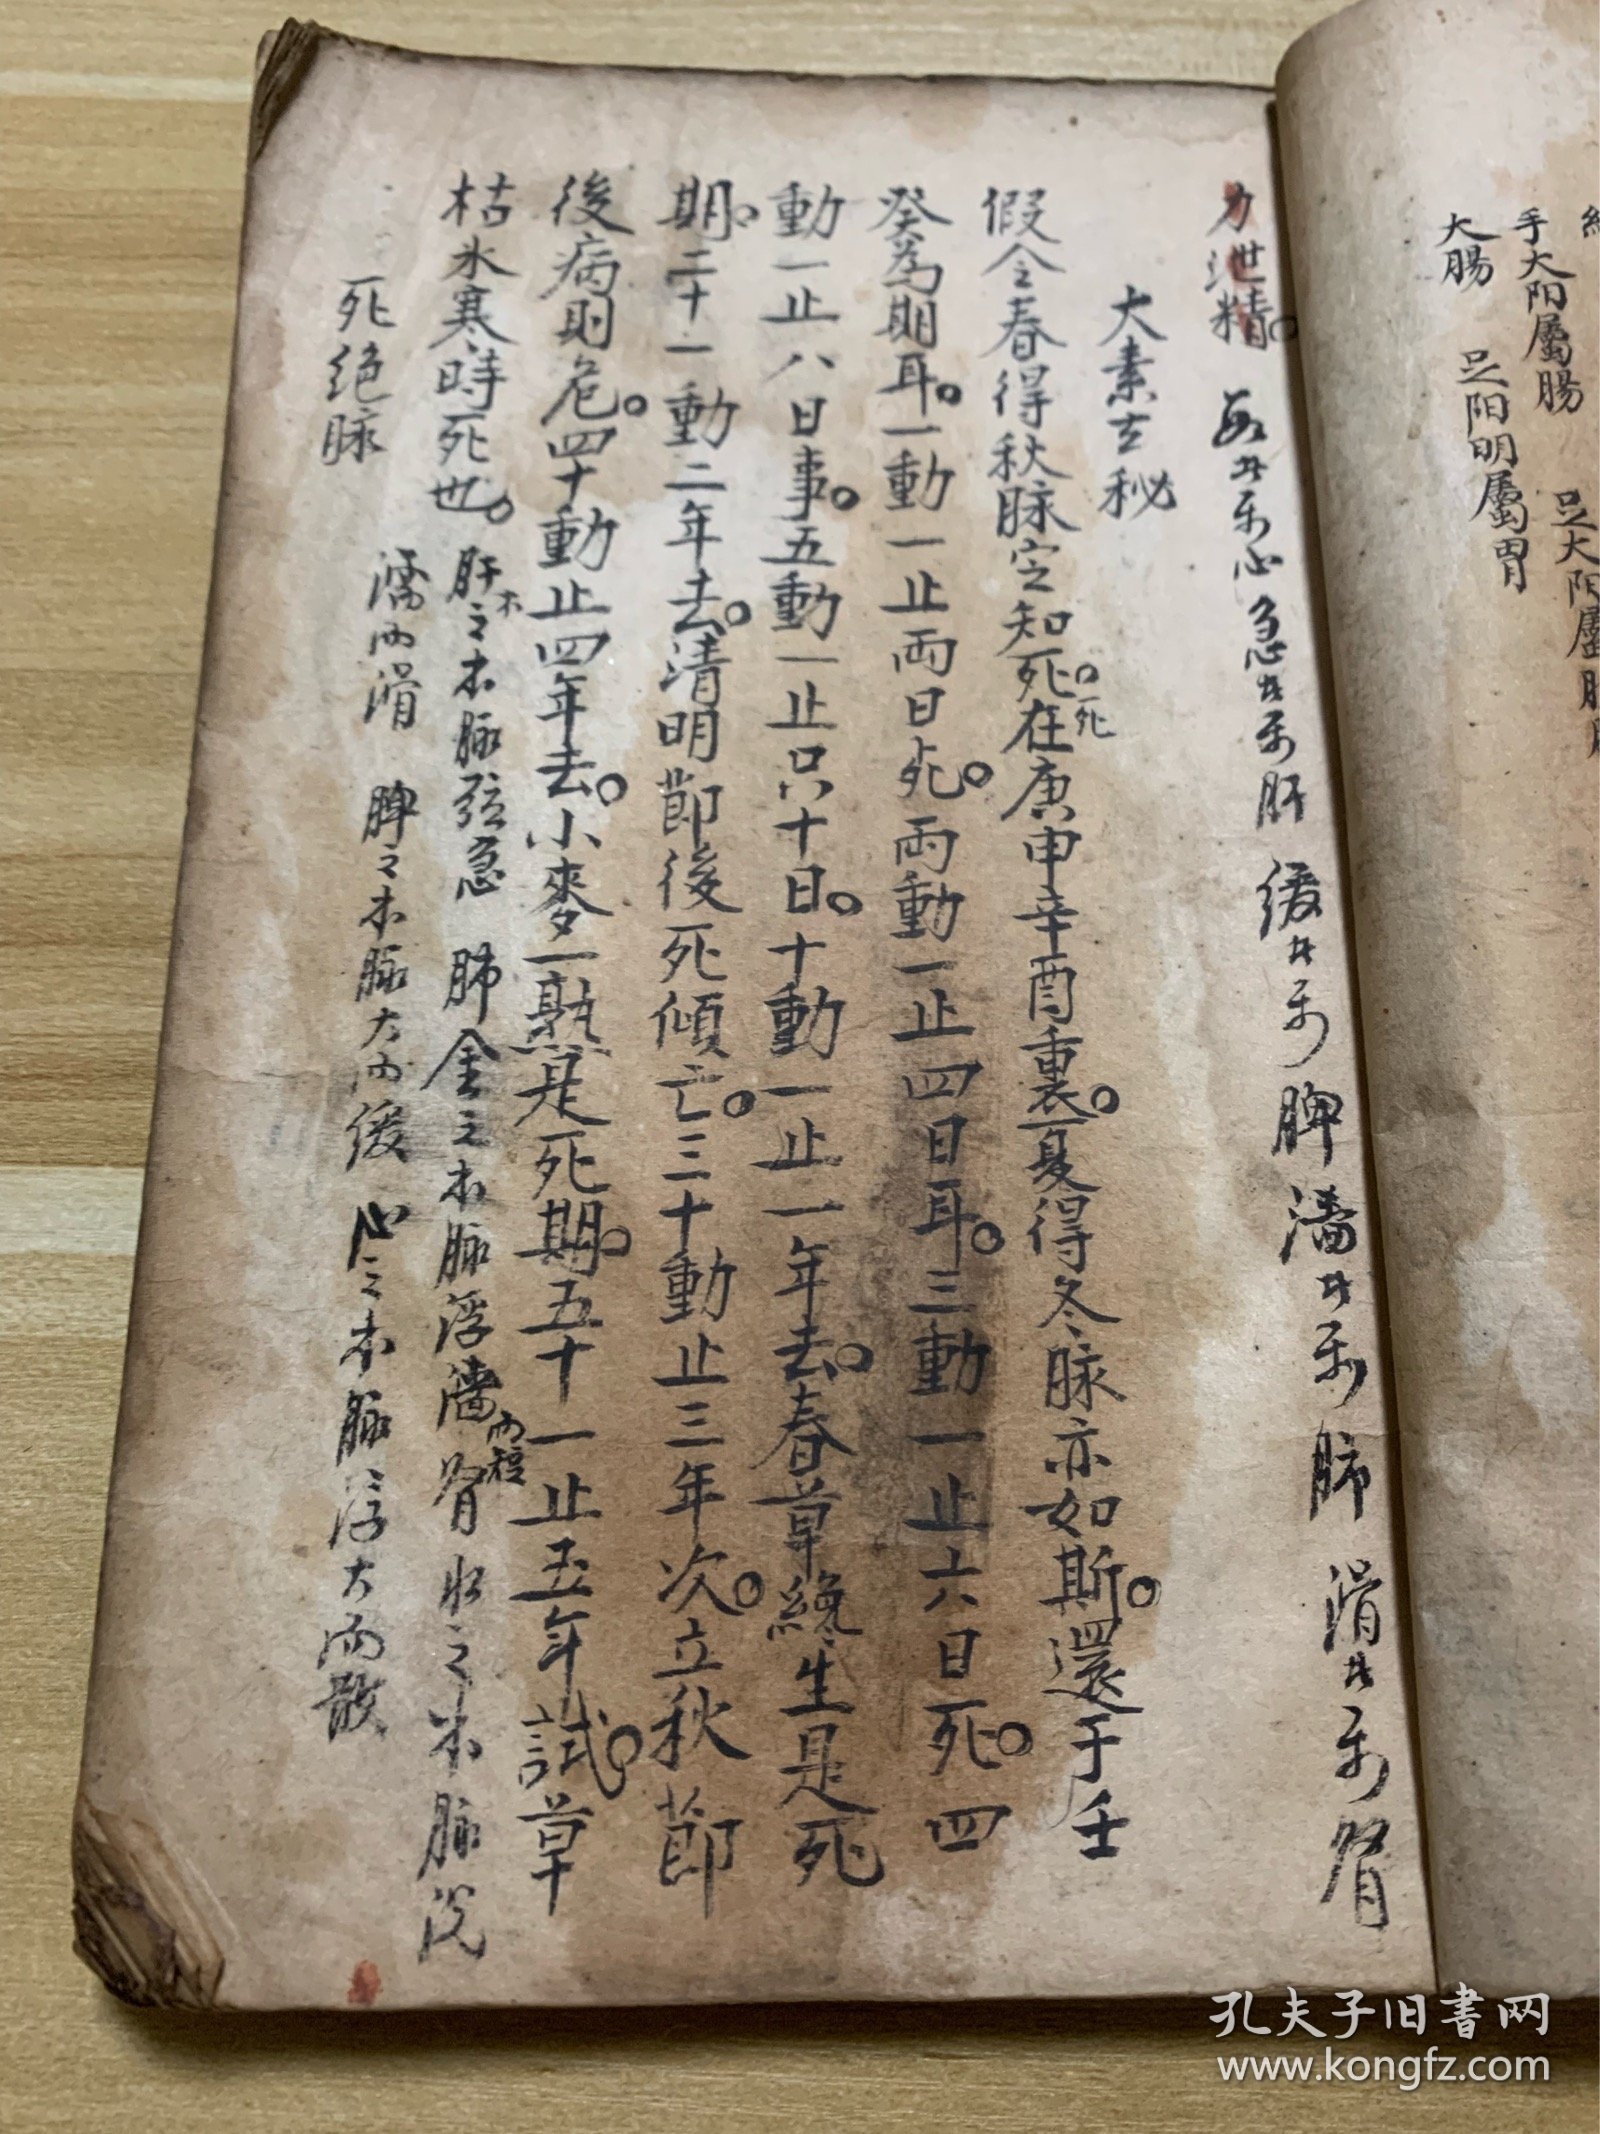 手大阳屬腸
足大阳屬
大腸
足阳明屬胃
力泄精
心急 肝 緩 脾 肺 滑 腎
大素玄秘
假令春得秋脉定知死在庚申辛酉裏夏得冬脉亦如斯還于壬
口死
癸為期耳一動一止両日死両動一止四日耳三動一止六日死四
動一止八日事五動一止只十日十動一止一年去春草纔生是死
期二十一動二年去清明節後死傾亡三十動止三年次立秋節
後病則危四十動止四年去小麥一熟是死期五十一止五年試草
枯氷寒時死也
肝之本脉弦急 肺金之本脉浮濇而短 腎水之本脉沉
木
濡而滑 脾之本脉大而緩 心之本脉浮大而散
死绝脉
孔夫子旧书网
www.kongfz.com